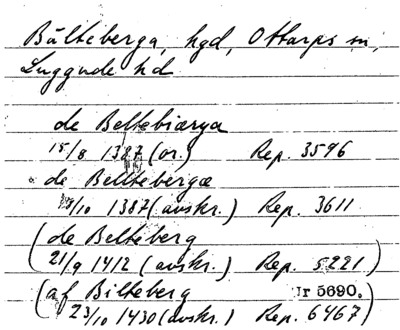 Bälteberga, hgd, Ottarps sn,
Luggude hd
de Beltebiærga
18/8 1387 (or.) Rep. 3596
de Beltebergæ
/10 1387 (avskr.) Rep. 3611
(de Belteberg
21/9 1412 (avskr.) Rep. 5221)
(af Bilteberg Jr 5690.
23/10 1430 (avskr.) Rep. 6467)